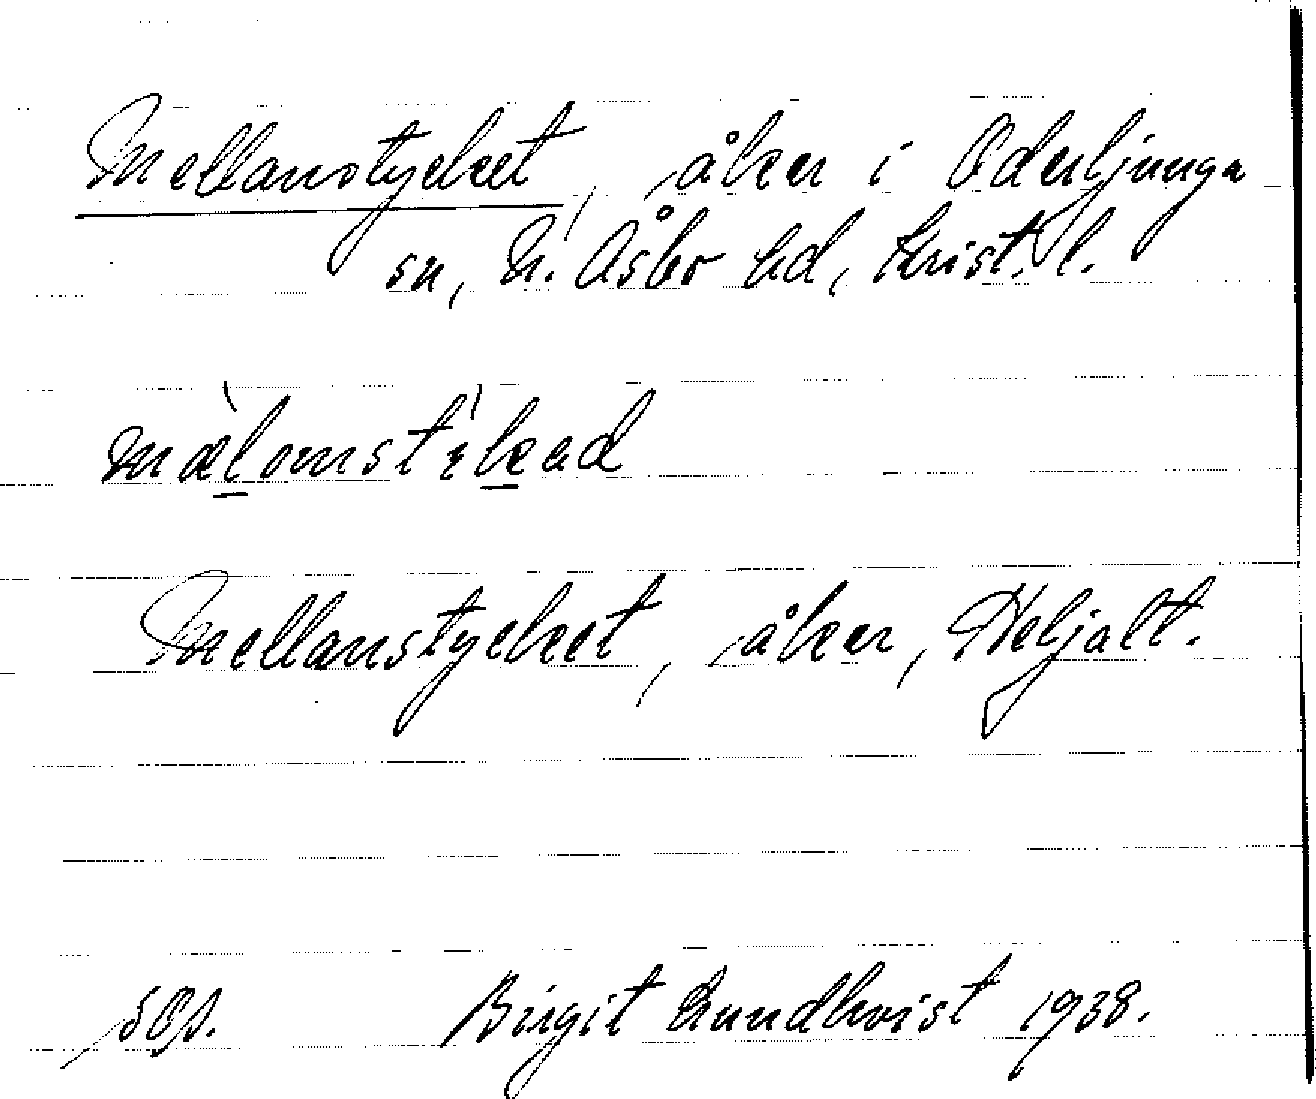 Mellanstycket, åker i Oderljunga
sn, N. Åsbo hd, Krist. l.
mælomstɛkad
Mellanstycket, åker, Heljalt.
sOs. Birgit Lundkvist 1938.